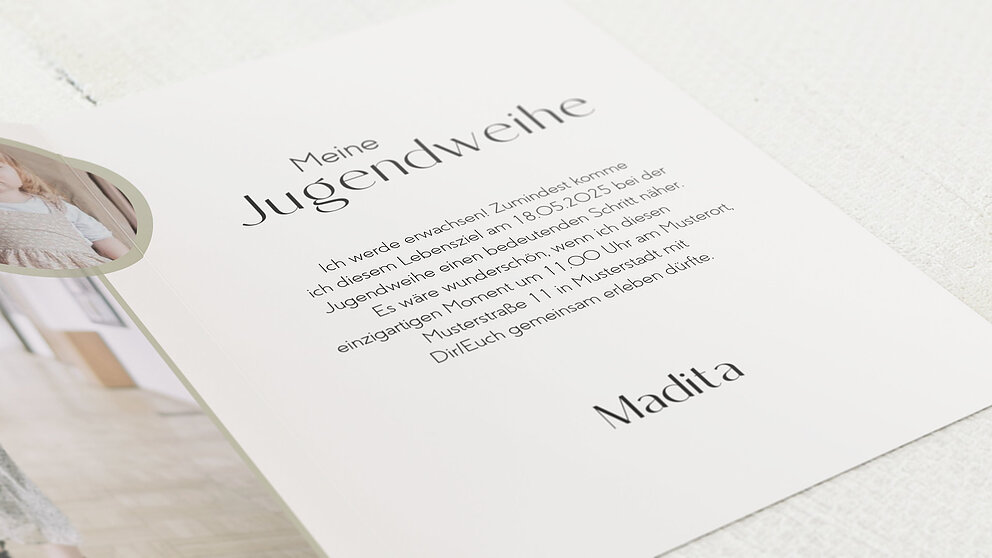 Meine
Jugendweihe
Ich werde erwachsen! Zumindest komme
ich diesem Lebensziel am 18.05.2025 bei der
Jugendweihe einen bedeutenden Schritt näher.
Es wäre wunderschön, wenn ich diesen
einzigartigen Moment um 11.00 Uhr am Musterort,
Musterstraße 11 in Musterstadt mit
Dir/Euch gemeinsam erleben dürfte.
Madita